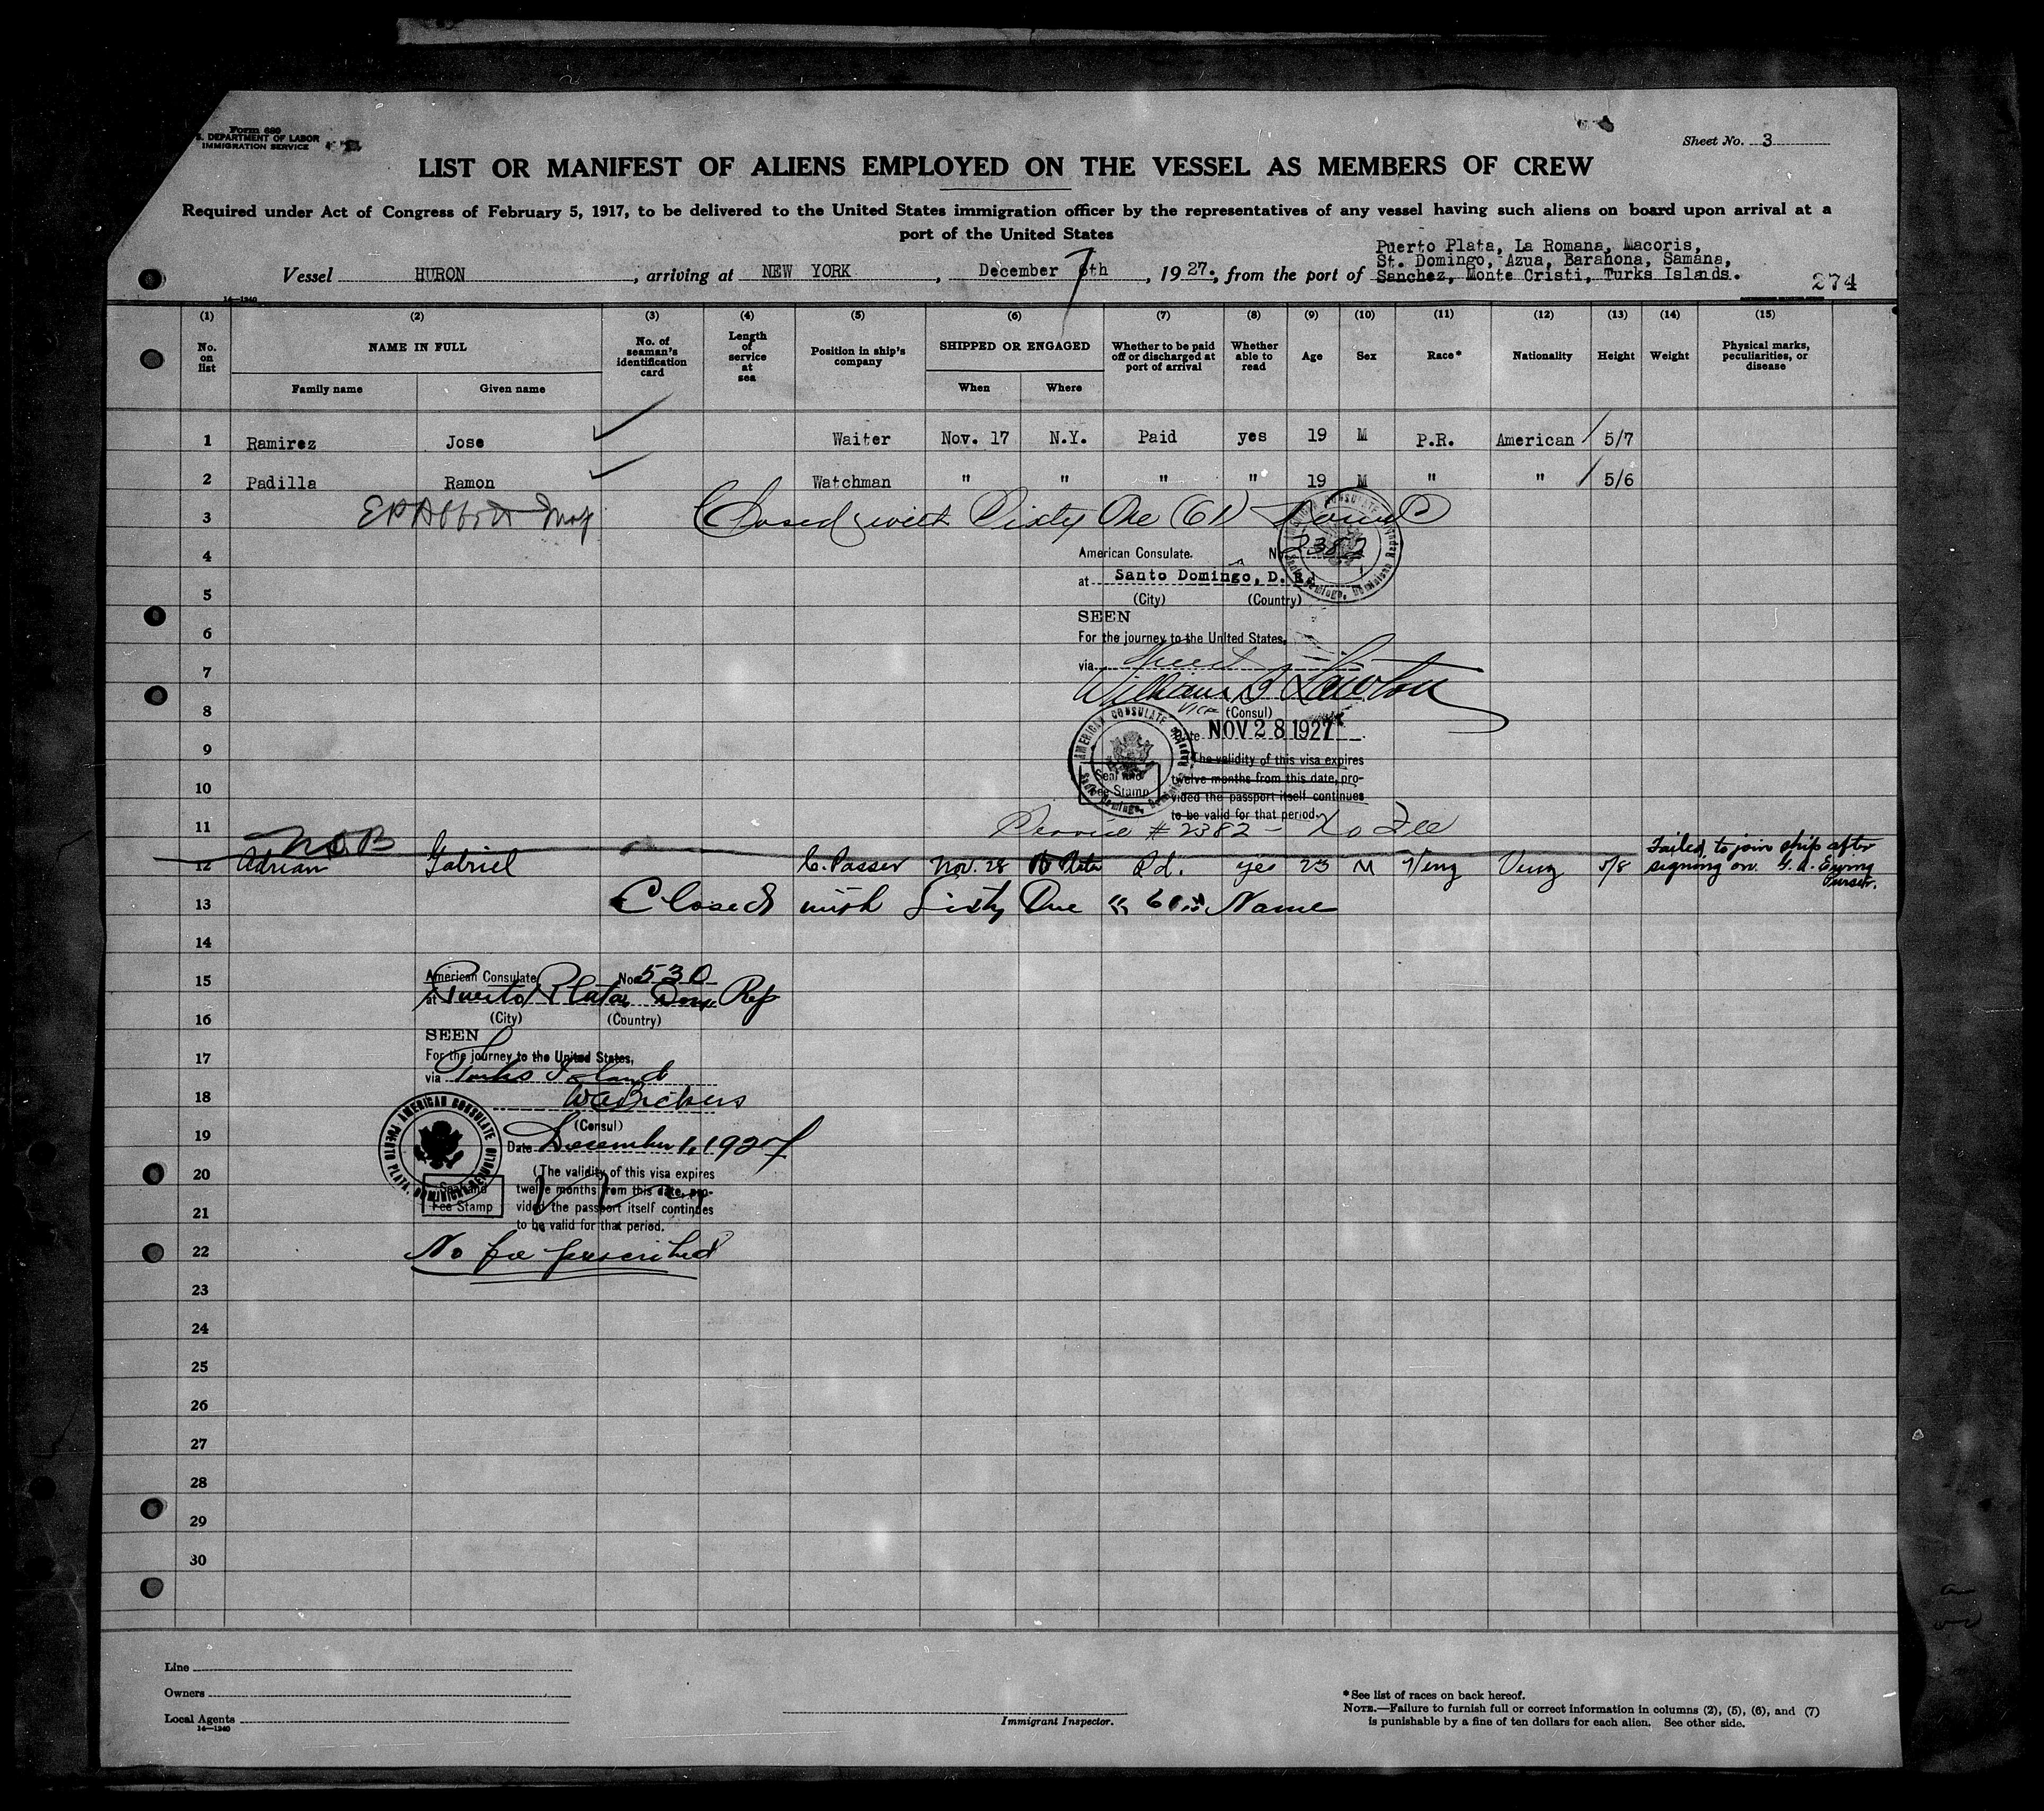 Form 680
S. DEPARTMENT OF LABOR
IMMIGRATION SERVICE
Sheet No. 3
LIST OR MANIFEST OF ALIENS EMPLOYED ON THE VESSEL AS MEMBERS OF CREW
Required under Act of Congress of February 5, 1917, to be delivered to the United States immigration officer by the representatives of any vessel having such aliens on board upon arrival at a
port of the United States
Puerto Plata, La Romana, Macoris,
St. Domingo, Azua, Barahona, Samana,
Vessel HURON, arriving at NEW YORK, December 6th 7, 1927., from the port of Sanchez, Monte Cristi, Turks Islands.
274
14—1240
(1) (2) (3) (4) (5) (6) (7) (8) (9) (10) (11) (12) (13) (14) (15)
No. on list
NAME IN FULL
Family name
Given name
No. of seaman's identification card
Length of service at sea
Position in ship's company
SHIPPED OR ENGAGED
When
Where
Whether to be paid off or discharged at port of arrival
Whether able to read
Age
Sex
Race*
Nationality
Height
Weight
Physical marks, peculiarities, or disease
1 Ramirez Jose Waiter Nov. 17 N.Y. Paid yes 19 M P.R. American 5/7
2 Padilla Ramon Watchman " " " " 19 M " " 5/6
3 Closed with Sixty One (61)
4
American Consulate. No. 2382
at Santo Domingo, D. R.
5
(City) (Country)
SEEN
6
For the journey to the United States,
7
via
William B Lawton
8
vice (Consul)
Date NOV 28 1927
AMERICAN CONSULATE
9
The validity of this visa expires
twelve months from this date, pro-
10
Seal and
Fee Stamp
vided the passport itself continues
to be valid for that period.
11
Service # 2382 - No Fee
N.O.B
12 Adrian Gabriel C. Passer Nov. 28 P Plata Pd. yes 23 M Venz Venz 5/8 Failed to join ship after
signing on. G. A. Ewing
Purser.
13 Closed with Sixty One "61" Name
14
15
American Consulate No. 530
at Puerto Plata, Dom. Rep
16
(City) (Country)
SEEN
17
For the journey to the United States,
via Turks Island
18
W A Bickers
(Consul)
19
Date December 1, 1927
AMERICAN CONSULATE
PUERTO PLATA, DOMINICAN REPUBLIC
20
(The validity of this visa expires
twelve months from this date, pro-
Seal and
Fee Stamp
21
vided the passport itself continues
to be valid for that period.
22
No fee prescribed
23
24
25
26
27
28
29
30
Line
Owners
Local Agents
14—1240
Immigrant Inspector.
*See list of races on back hereof.
NOTE.—Failure to furnish full or correct information in columns (2), (5), (6), and (7)
is punishable by a fine of ten dollars for each alien. See other side.